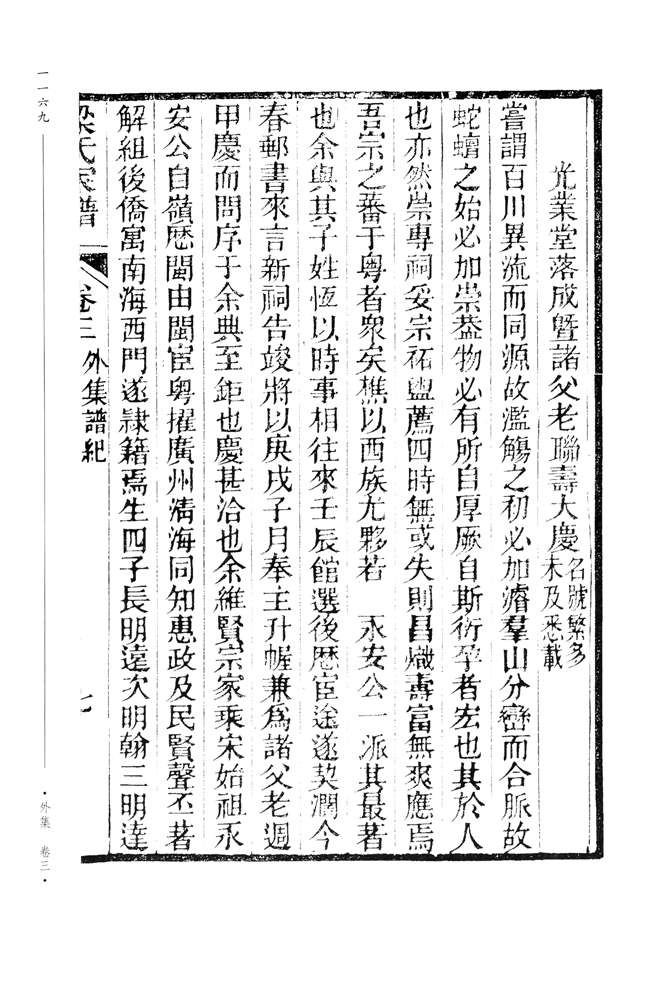 光業堂落成曁諸父老聯壽大慶名號繁多未及悉載
嘗謂百川異流而同源故濫觴之初必加濬羣山分巒而合脈故
蛇蟺之始必加崇葢物必有所自厚厥自斯衍孕者宏也其於人
也亦然崇專祠妥宗祏盥薦四時無或失則昌熾壽富無爽應焉
吾宗之蕃于粤者衆矣樵以西族尤夥若 永安公一派其最著
也余與其子姓恆以時事相往來壬辰館選後歷宦途遂契濶今
春郵書來言新祠告竣將以庚戌子月奉主升幄兼爲諸父老週
甲慶而問序于余典至鉅也慶甚洽也余維賢宗家乘宋始祖永
安公自嶺歷閩由閩宦粤擢廣州淸海同知惠政及民賢聲丕著
解組後僑寓南海西門遂隸籍焉生四子長明遠次明翰三明達
梁氏家譜 卷三 外集譜紀 七
一一六九
·外集 卷三·